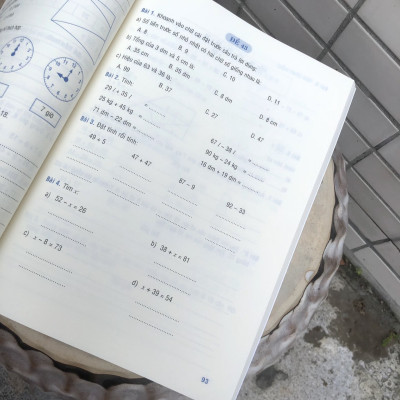 ĐỀ 43
Bài 1. Khoanh vào chữ cái đặt trước câu trả lời đúng:
a) Số liền trước số nhỏ nhất có hai chữ số giống nhau là:
A. 8 B. 9 C. 10 D. 11
b) Tổng của 3 dm và 5 cm là:
A. 35 cm B. 35 dm C. 8 dm D. 8 cm
c) Hiệu của 83 và 36 là:
A. 99 B. 37 C. 27 D. 47
Bài 2. Tính
29 l + 35 l = 67 l – 38 l =
25 kg + 45 kg = 90 kg – 24 kg =
71 dm – 22 dm = 15 dm + 19 dm =
Bài 3. Đặt tính rồi tính
49 + 5 47 + 47 87 – 9 92 – 33
Bài 4. Tìm x:
a) 52 – x = 26 b) 38 + x = 81
c) x – 8 = 73 d) x + 39 = 54
93
7 giờ